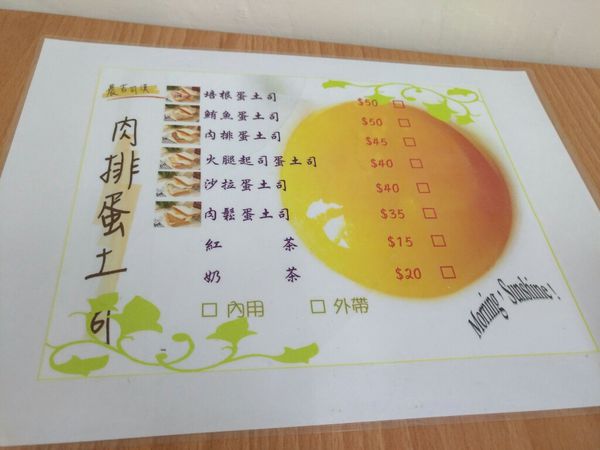 培根蛋土司 $50 □
鮪魚蛋土司 $50 □
肉排蛋土司 $45 □
火腿起司蛋土司 $40 □
沙拉蛋土司 $40 □
肉鬆蛋土司 $35 □
紅茶 $15 □
奶茶 $20 □
□ 內用 □ 外帶
Morning Sunshine!
肉排蛋土